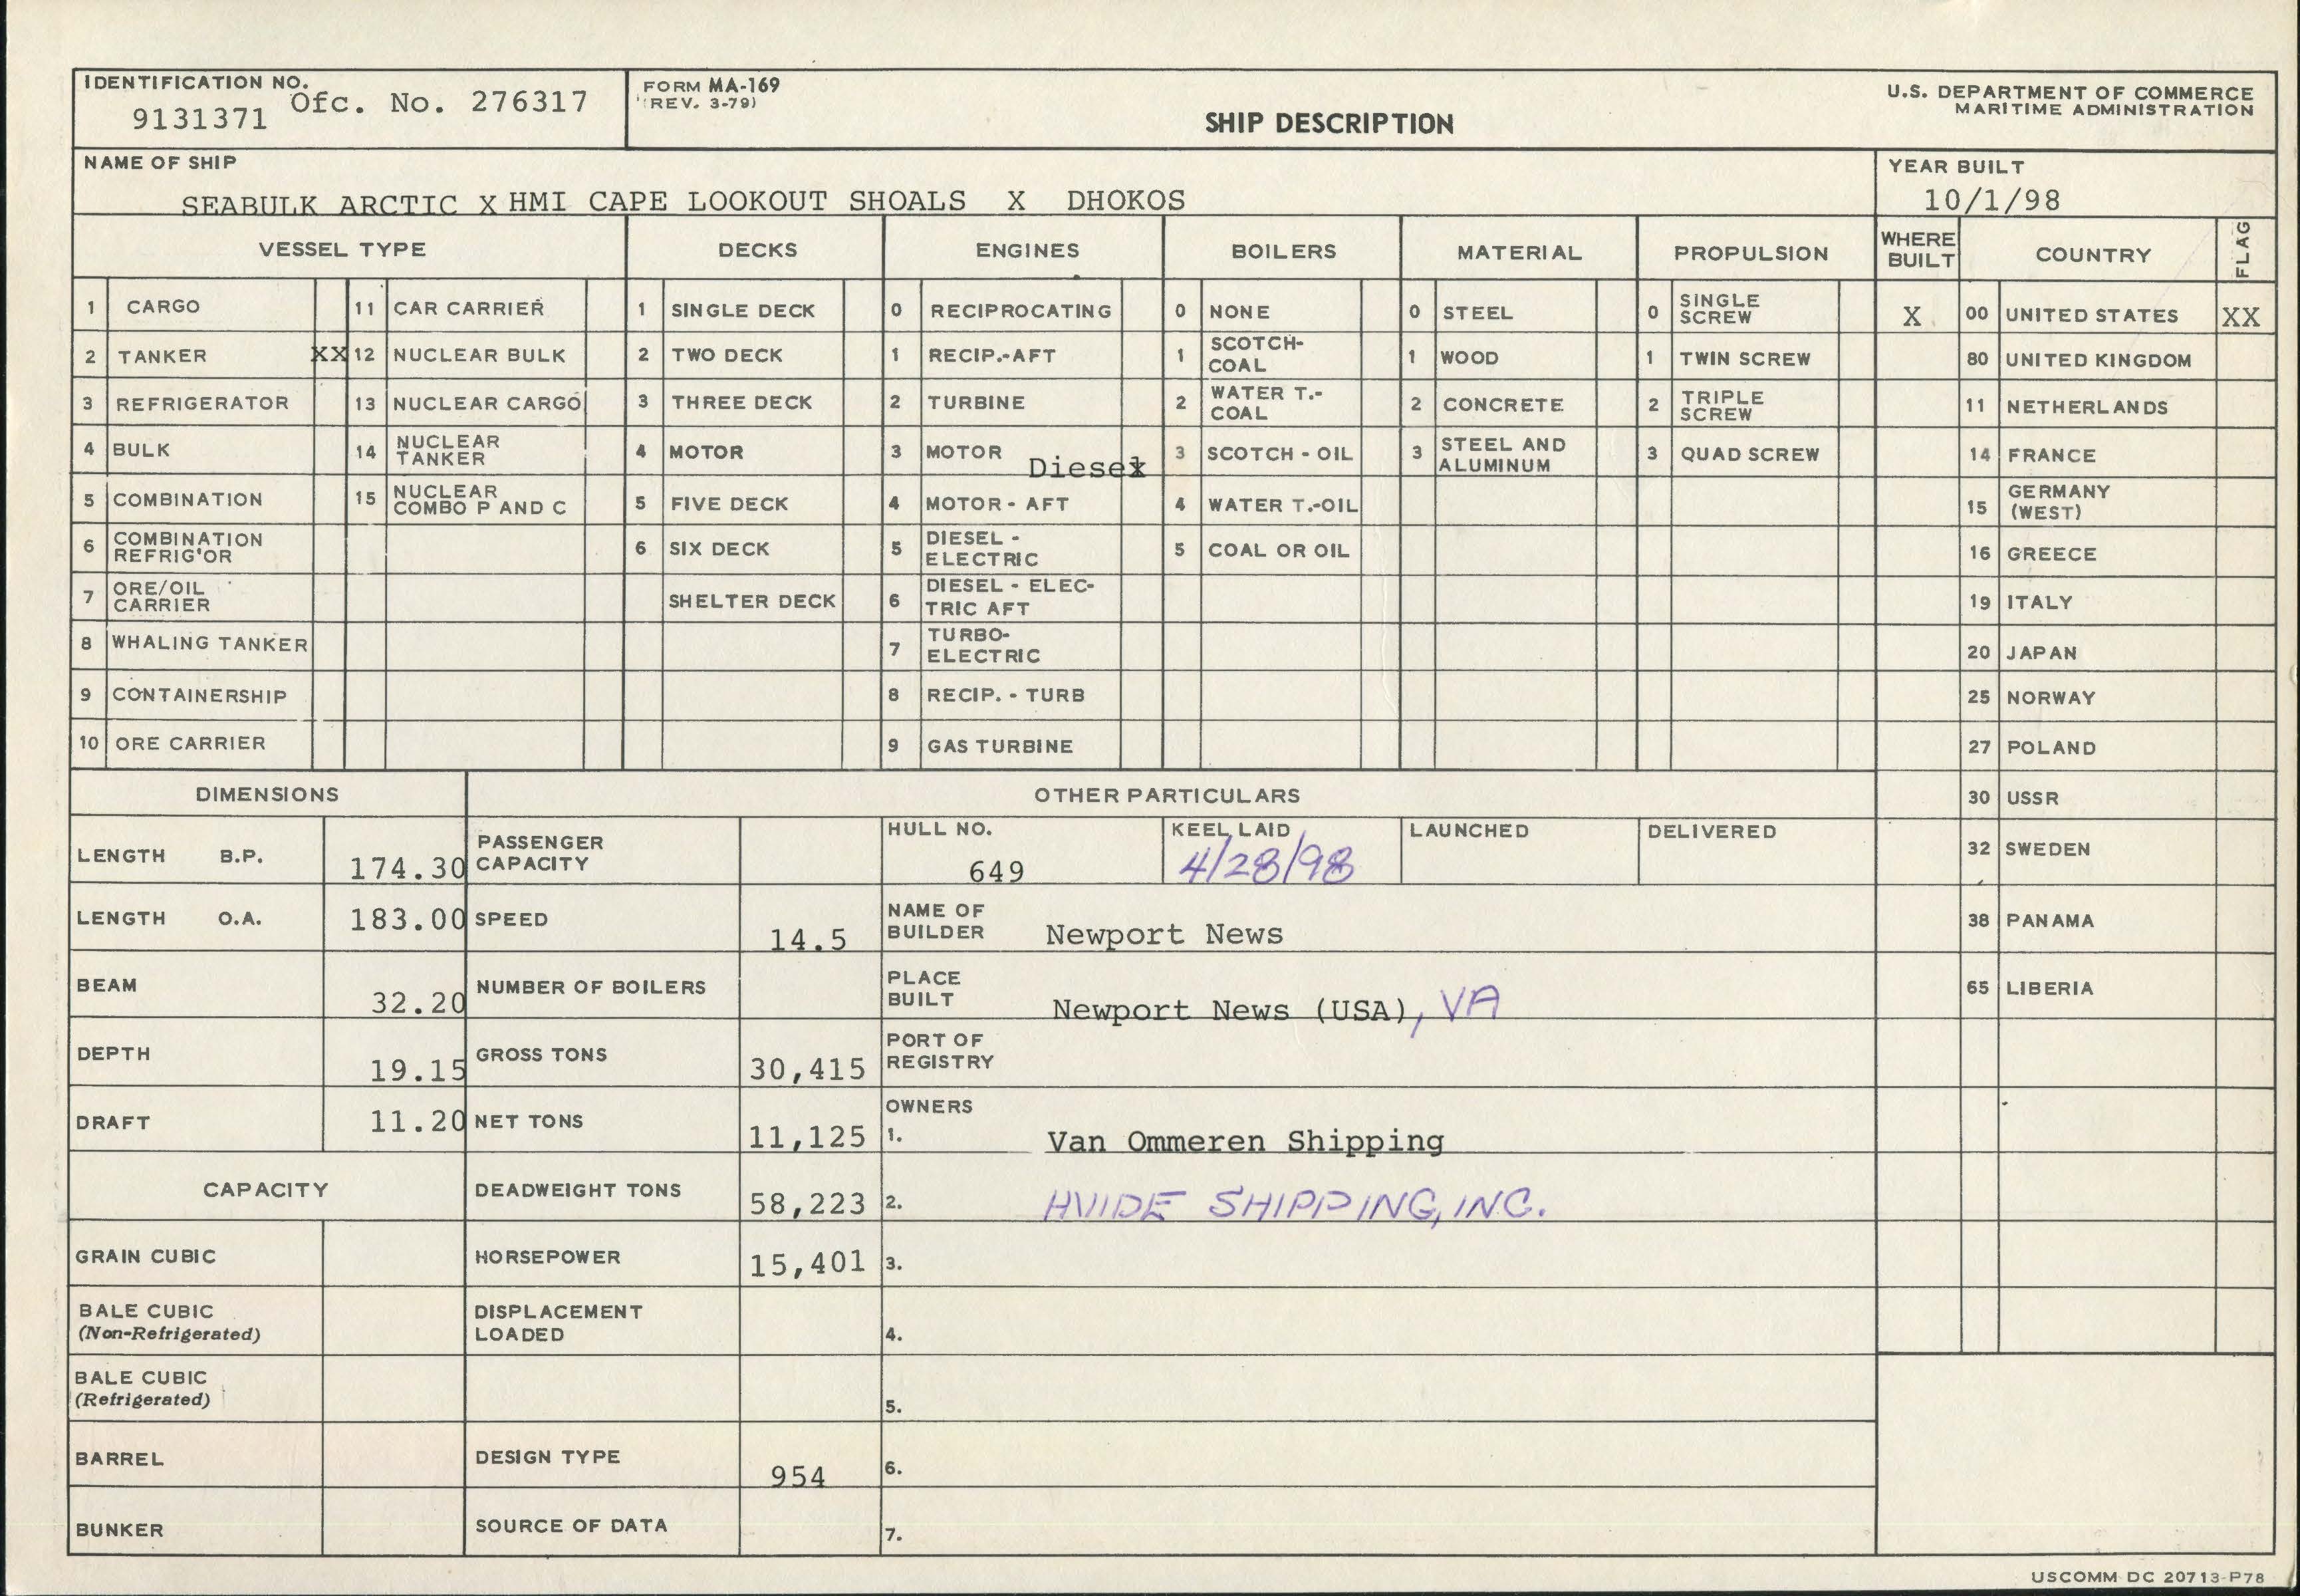 IDENTIFICATION NO.
9131371 Ofc. No. 276317
FORM MA-169
(REV. 3-79)
SHIP DESCRIPTION
U.S. DEPARTMENT OF COMMERCE
MARITIME ADMINISTRATION
NAME OF SHIP
SEABULK ARCTIC X HMI CAPE LOOKOUT SHOALS X DHOKOS
YEAR BUILT
10/1/98
VESSEL TYPE DECKS ENGINES BOILERS MATERIAL PROPULSION WHERE BUILT COUNTRY FLAG
1 CARGO 11 CAR CARRIER 1 SINGLE DECK 0 RECIPROCATING 0 NONE 0 STEEL 0 SINGLE SCREW X 00 UNITED STATES XX
2 TANKER XX 12 NUCLEAR BULK 2 TWO DECK 1 RECIP.-AFT 1 SCOTCH-COAL 1 WOOD 1 TWIN SCREW 80 UNITED KINGDOM
3 REFRIGERATOR 13 NUCLEAR CARGO 3 THREE DECK 2 TURBINE 2 WATER T.-COAL 2 CONCRETE 2 TRIPLE SCREW 11 NETHERLANDS
4 BULK 14 NUCLEAR TANKER 4 MOTOR 3 MOTOR Diesel 3 SCOTCH - OIL 3 STEEL AND ALUMINUM 3 QUAD SCREW 14 FRANCE
5 COMBINATION 15 NUCLEAR COMBO P AND C 5 FIVE DECK 4 MOTOR - AFT 4 WATER T.-OIL 15 GERMANY (WEST)
6 COMBINATION REFRIG'OR 6 SIX DECK 5 DIESEL - ELECTRIC 5 COAL OR OIL 16 GREECE
7 ORE/OIL CARRIER SHELTER DECK 6 DIESEL - ELECTRIC AFT 19 ITALY
8 WHALING TANKER 7 TURBO-ELECTRIC 20 JAPAN
9 CONTAINERSHIP 8 RECIP. - TURB 25 NORWAY
10 ORE CARRIER 9 GAS TURBINE 27 POLAND
DIMENSIONS OTHER PARTICULARS 30 USSR
LENGTH B.P. 174.30 PASSENGER CAPACITY HULL NO. 649 KEEL LAID 4/28/98 LAUNCHED DELIVERED 32 SWEDEN
LENGTH O.A. 183.00 SPEED 14.5 NAME OF BUILDER Newport News 38 PANAMA
BEAM 32.20 NUMBER OF BOILERS PLACE BUILT Newport News (USA), VA 65 LIBERIA
DEPTH 19.15 GROSS TONS 30,415 PORT OF REGISTRY
DRAFT 11.20 NET TONS 11,125 OWNERS 1. Van Ommeren Shipping
CAPACITY DEADWEIGHT TONS 58,223 2. HVIDE SHIPPING, INC.
GRAIN CUBIC HORSEPOWER 15,401 3.
BALE CUBIC (Non-Refrigerated) DISPLACEMENT LOADED 4.
BALE CUBIC (Refrigerated) 5.
BARREL DESIGN TYPE 954 6.
BUNKER SOURCE OF DATA 7.
USCOMM DC 20713-P78